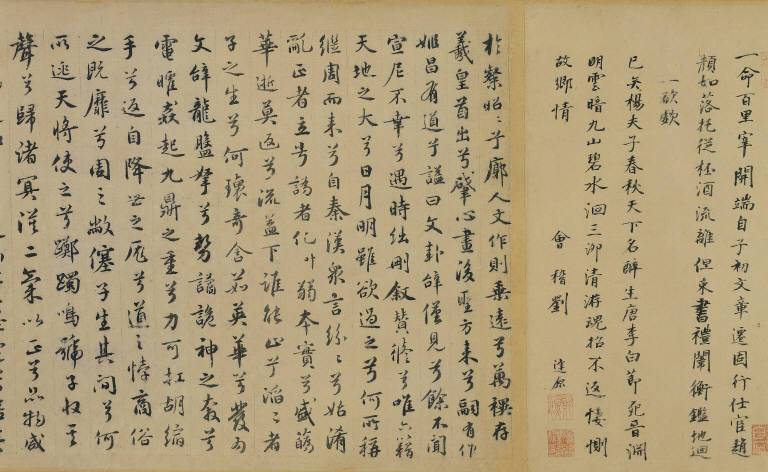 一命百里宰開端自子初文章遷固行仕宦趙
顏如落托從杯酒流離但束書禮闈衡鑑地迴
一欷歔
已矣楊夫子春秋天下名醉生唐李白節死晉淵
明雲暗九山碧水洄三泖清游魂招不返悽惻
故鄉情
會稽劉
於粲昭〻乎廓人文作則垂遠兮萬禩存
羲皇首出兮肇心畫後聖方來兮嗣有作
姬昌有道乎謚曰文卦辭僅見兮餘不聞
宣尼不幸兮遇時絀刪敘贊脩兮唯六籍
天地之大兮日月明雖欲過之兮何所稱
繼周而來兮自秦漢眾言紛〻兮姑淆
亂正者立兮訛者化叶獨本實兮盛
華逝莫返兮流益下誰能止乎滔〻者
子之生兮何瓌奇含茹英華兮發為
文辭龍盬拏兮勢譎詭神之奔兮
電曜焱起九鼎之重兮力可扛胡縮
手兮返自降世之厖兮道之悖商俗
之既靡兮周之敝蹇子生其間兮何
所逃天將使之兮躑躅鳴號子收其
聲兮歸諸冥漠二氣以正兮品物咸